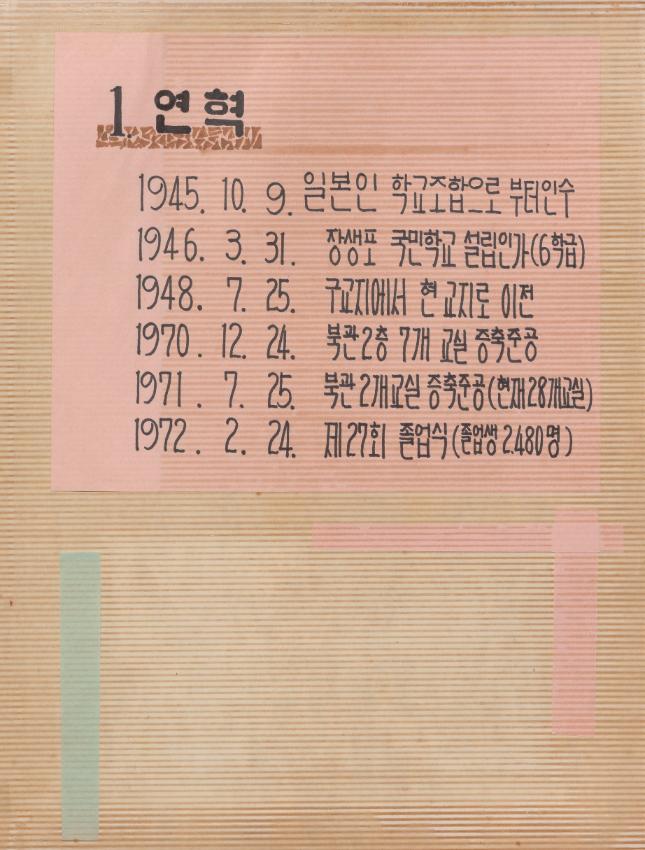 1. 연혁
1945. 10. 9. 일본인 학교조합으로 부터인수
1946. 3. 31. 장생포 국민학교 설립인가(6학급)
1948. 7. 25. 구교지에서 현 교지로 이전
1970. 12. 24. 북관2층 7개 교실 증축준공
1971. 7. 25. 북관 2개교실 증축준공(현재28개교실)
1972. 2. 24. 제27회 졸업식(졸업생 2.480명)